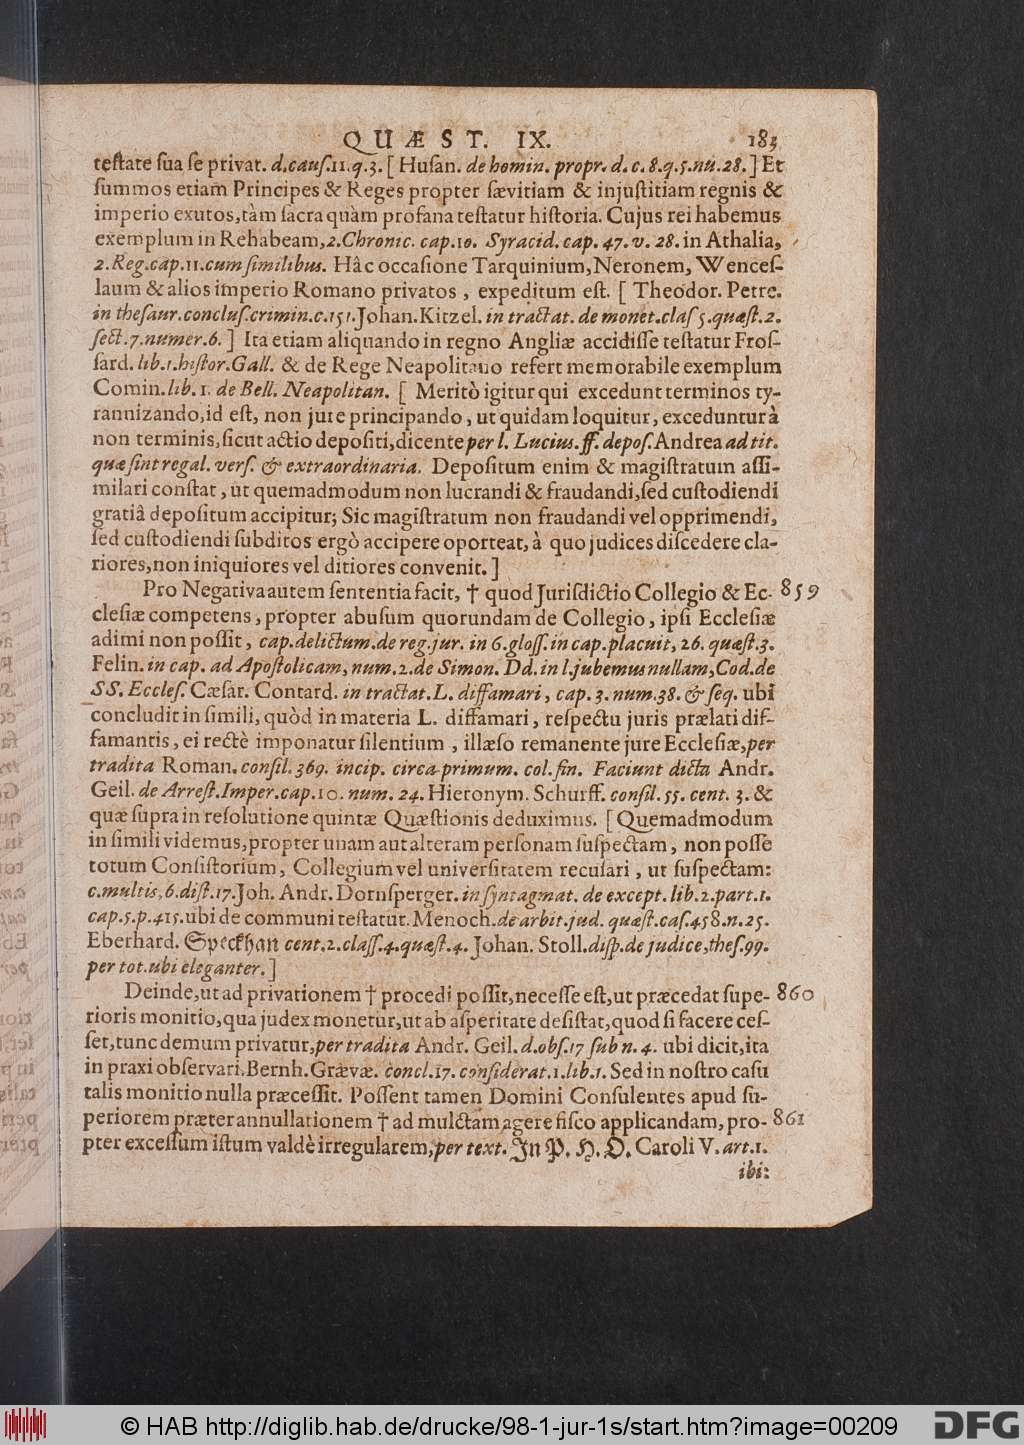 QUÆST. IX. 183
teſtate ſua ſe privat. d. cauſ. 11. q. 3. [ Huſan. de homin. propr. d. c. 8. q. 5. nu. 28. ] Et
ſummos etiam Principes & Reges propter ſævitiam & injuſtitiam regnis &
imperio exutos, tàm ſacra quàm profana teſtatur hiſtoria. Cujus rei habemus
exemplum in Rehabeam, 2. Chronic. cap. 10. Syracid. cap. 47. v. 28. in Athalia,
2. Reg. cap. 11. cum ſimilibus. Hâc occaſione Tarquinium, Neronem, Wenceſ-
laum & alios imperio Romano privatos, expeditum eſt. [ Theodor. Petre.
in theſaur. concluſ. crimin. c. 151. Johan. Kitzel. in tractat. de monet. claſ 5. quæſt. 2.
ſect. 7. numer. 6. ] Ita etiam aliquando in regno Angliæ accidiſſe teſtatur Froſ-
ſard. lib. 1. hiſtor. Gall. & de Rege Neapolitano refert memorabile exemplum
Comin. lib. 1. de Bell. Neapolitan. [ Meritò igitur qui excedunt terminos ty-
rannizando, id eſt, non jure principando, ut quidam loquitur, exceduntur à
non terminis, ſicut actio depoſiti, dicente per l. Lucius. ff. depoſ. Andrea ad tit.
quæ ſint regal. verſ. & extraordinaria. Depoſitum enim & magiſtratum aſſi-
milari conſtat, ut quemadmodum non lucrandi & fraudandi, ſed cuſtodiendi
gratiâ depoſitum accipitur; Sic magiſtratum non fraudandi vel opprimendi,
ſed cuſtodiendi ſubditos ergò accipere oporteat, à quo judices diſcedere cla-
riores, non iniquiores vel ditiores convenit. ]
Pro Negativa autem ſententia facit, † quod Juriſdictio Collegio & Ec- 859
cleſiæ competens, propter abuſum quorundam de Collegio, ipſi Eccleſiæ
adimi non poſſit, cap. delictum. de reg. jur. in 6. gloſſ. in cap. placuit, 26. quæſt. 3.
Felin. in cap. ad Apoſtolicam, num. 2. de Simon. Dd. in l. jubemus nullam, Cod. de
SS. Eccleſ. Cæſar. Contard. in tractat. L. diffamari, cap. 3. num. 38. & ſeq. ubi
concludit in ſimili, quòd in materia L. diffamari, reſpectu juris prælati dif-
famantis, ei rectè imponatur ſilentium, illæſo remanente jure Eccleſiæ, per
tradita Roman. conſil. 369. incip. circa primum. col. fin. Faciunt dicta Andr.
Geil. de Arreſt. Imper. cap. 10. num. 24. Hieronym. Schurff. conſil. 55. cent. 3. &
quæ ſupra in reſolutione quintæ Quæſtionis deduximus. [ Quemadmodum
in ſimili videmus, propter unam aut alteram perſonam ſuſpectam, non poſſe
totum Conſiſtorium, Collegium vel univerſitatem recuſari, ut ſuſpectam:
c. multis, 6. diſt. 17. Joh. Andr. Dornſperger. in ſyntagmat. de except. lib. 2. part. 1.
cap. 5. p. 415. ubi de communi teſtatur. Menoch. de arbit. jud. quæſt. caſ. 458. n. 25.
Eberhard. Speckhan cent. 2. claſſ. 4. quæſt. 4. Johan. Stoll. diſp. de judice, theſ. 99.
per tot. ubi eleganter. ]
Deinde, ut ad privationem † procedi poſſit, neceſſe eſt, ut præcedat ſupe- 860
rioris monitio, qua judex monetur, ut ab aſperitate deſiſtat, quod ſi facere ceſ-
ſet, tunc demum privatur, per tradita Andr. Geil. d. obſ. 17 ſub n. 4. ubi dicit, ita
in praxi obſervari. Bernh. Grævæ. concl. 17. conſiderat. 1. lib. 1. Sed in noſtro caſu
talis monitio nulla præceſſit. Poſſent tamen Domini Conſulentes apud ſu-
periorem præter annullationem † ad mulctam agere fiſco applicandam, pro- 861
pter exceſſum iſtum valdè irregularem, per text. In P. H. O. Caroli V. art. 1.
ibi:
© HAB http://diglib.hab.de/drucke/98-1-jur-1s/start.htm?image=00209 DFG